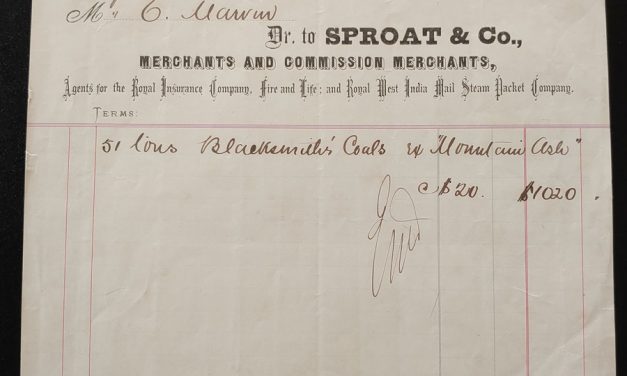 Mr E. Marvin
Dr. to SPROAT & Co.,
MERCHANTS AND COMMISSION MERCHANTS,
Agents for the Royal Insurance Company, Fire and Life; and Royal West India Mail Steam Packet Company.
TERMS:
51 Tons Blacksmith's Coals ex "Mountain Ash"
@ $20. $1020.